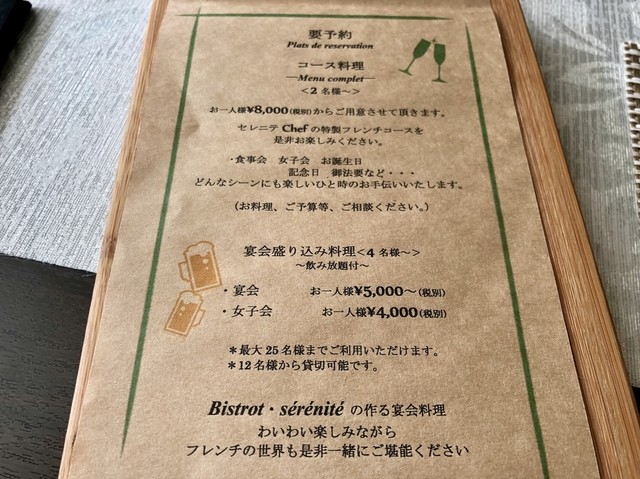 要予約
Plats de reservation
コース料理
―Menu complet―
<2 名様～>
お一人様¥8,000(税別)からご用意させて頂きます。
セレニテ Chef の特製フレンチコースを
是非お楽しみください。
・食事会 女子会 お誕生日
記念日 御法要など・・・
どんなシーンにも楽しいひと時のお手伝いいたします。
(お料理、ご予算等、ご相談ください。)
宴会盛り込み料理<4 名様～>
～飲み放題付～
・宴会 お一人様¥5,000～(税別)
・女子会 お一人様¥4,000(税別)
＊最大 25 名様までご利用いただけます。
＊12 名様から貸切可能です。
Bistrot・sérénité の作る宴会料理
わいわい楽しみながら
フレンチの世界も是非一緒にご堪能ください